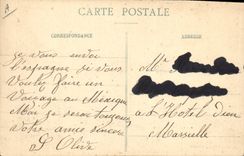 A
CARTE POSTALE
CORRESPONDANCE
ADRESSE
je vous envoi
l'espagne si vous
voulez faire un
voyage au Mexique
Moi je serai toujours
votre amie sincère
S Olive
M
a l'Hotel Dieu
Marseille